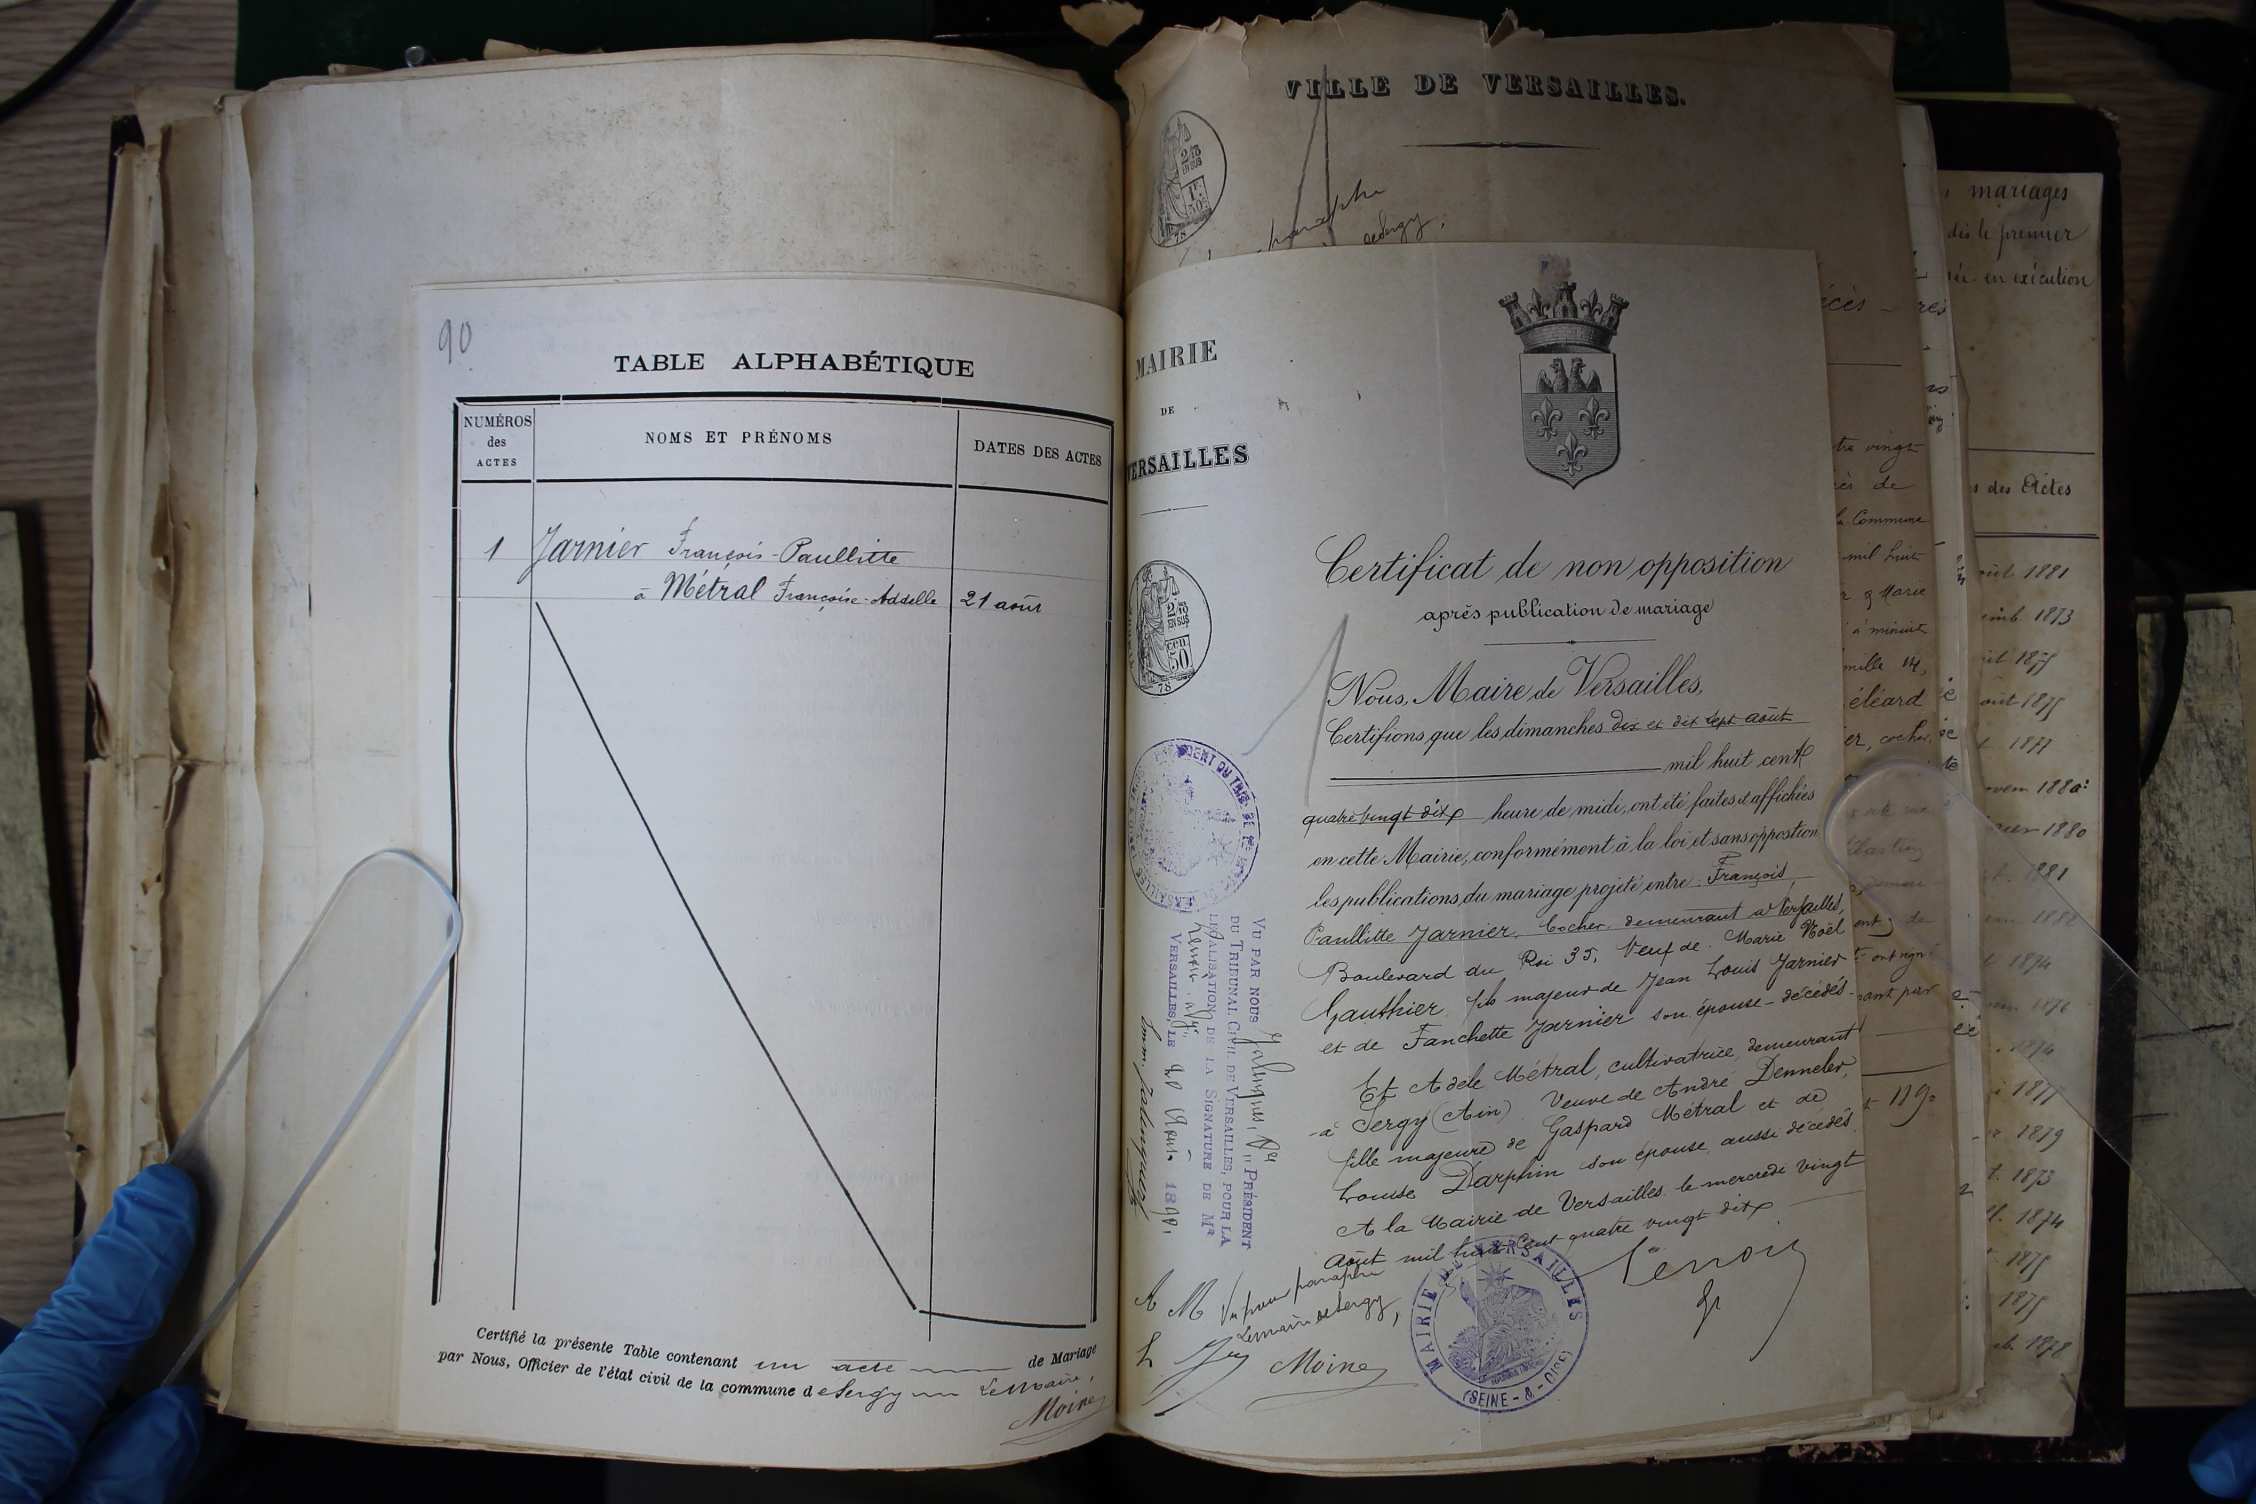 90
TABLE ALPHABÉTIQUE
NUMÉROS
des
ACTES
NOMS ET PRÉNOMS
DATES DES ACTES
1 Jarnier François-Paullitte
à Métral Françoise-Addelle 21 août
Certifié la présente Table contenant un acte de Mariage
par Nous, Officier de l'état civil de la commune de Sergy Le Maire,
Moine
VILLE DE VERSAILLES.
2/10
EN SUS
1F
50c
78
de Sergy,
MAIRIE
DE
VERSAILLES
2/10
EN SUS
cen
50
78
Certificat de non opposition
après publication de mariage
Nous, Maire de Versailles,
Certifions que les dimanches dix et dix sept août
mil huit cent
quatre vingt dix heure de midi, ont été faites et affichées
en cette Mairie, conformément à la loi et sans opposition
les publications du mariage projeté entre François
Paullitte Jarnier, Cocher, demeurant à Versailles,
Boulevard du Roi 35, Veuf de Marie Noël
Gauthier, fils majeur de Jean Louis Jarnier
et de Fanchette Jarnier son épouse - décédés -
Et Adèle Métral, cultivatrice, demeurant
à Sergy (Ain) Veuve de André Denneler,
fille majeure de Gaspard Métral et de
Louise Darphin son épouse, aussi décédés.
A la Mairie de Versailles le mercredi vingt
Août mil huit cent quatre vingt dix
Lenoir
MAIRIE DE VERSAILLES
(SEINE-&-OISE)
VU PAR NOUS PRÉSIDENT
DU TRIBUNAL CIVIL DE VERSAILLES, POUR LA
LÉGALISATION DE LA SIGNATURE DE Mr
Lenoir, adjt,
VERSAILLES, LE 20 Août 1890,
Vu pour paraphe
Le maire de Sergy,
Moine
mariages
dès le premier
en exécution
des Actes
août 1881
1873
1875
août 1875
1877
1880
1881
1874
1876
1874
1877
1879
1873
1874
1875
1875
1878
tre vingt
la Commune
mil huit
Marie
à minuit
cocher,